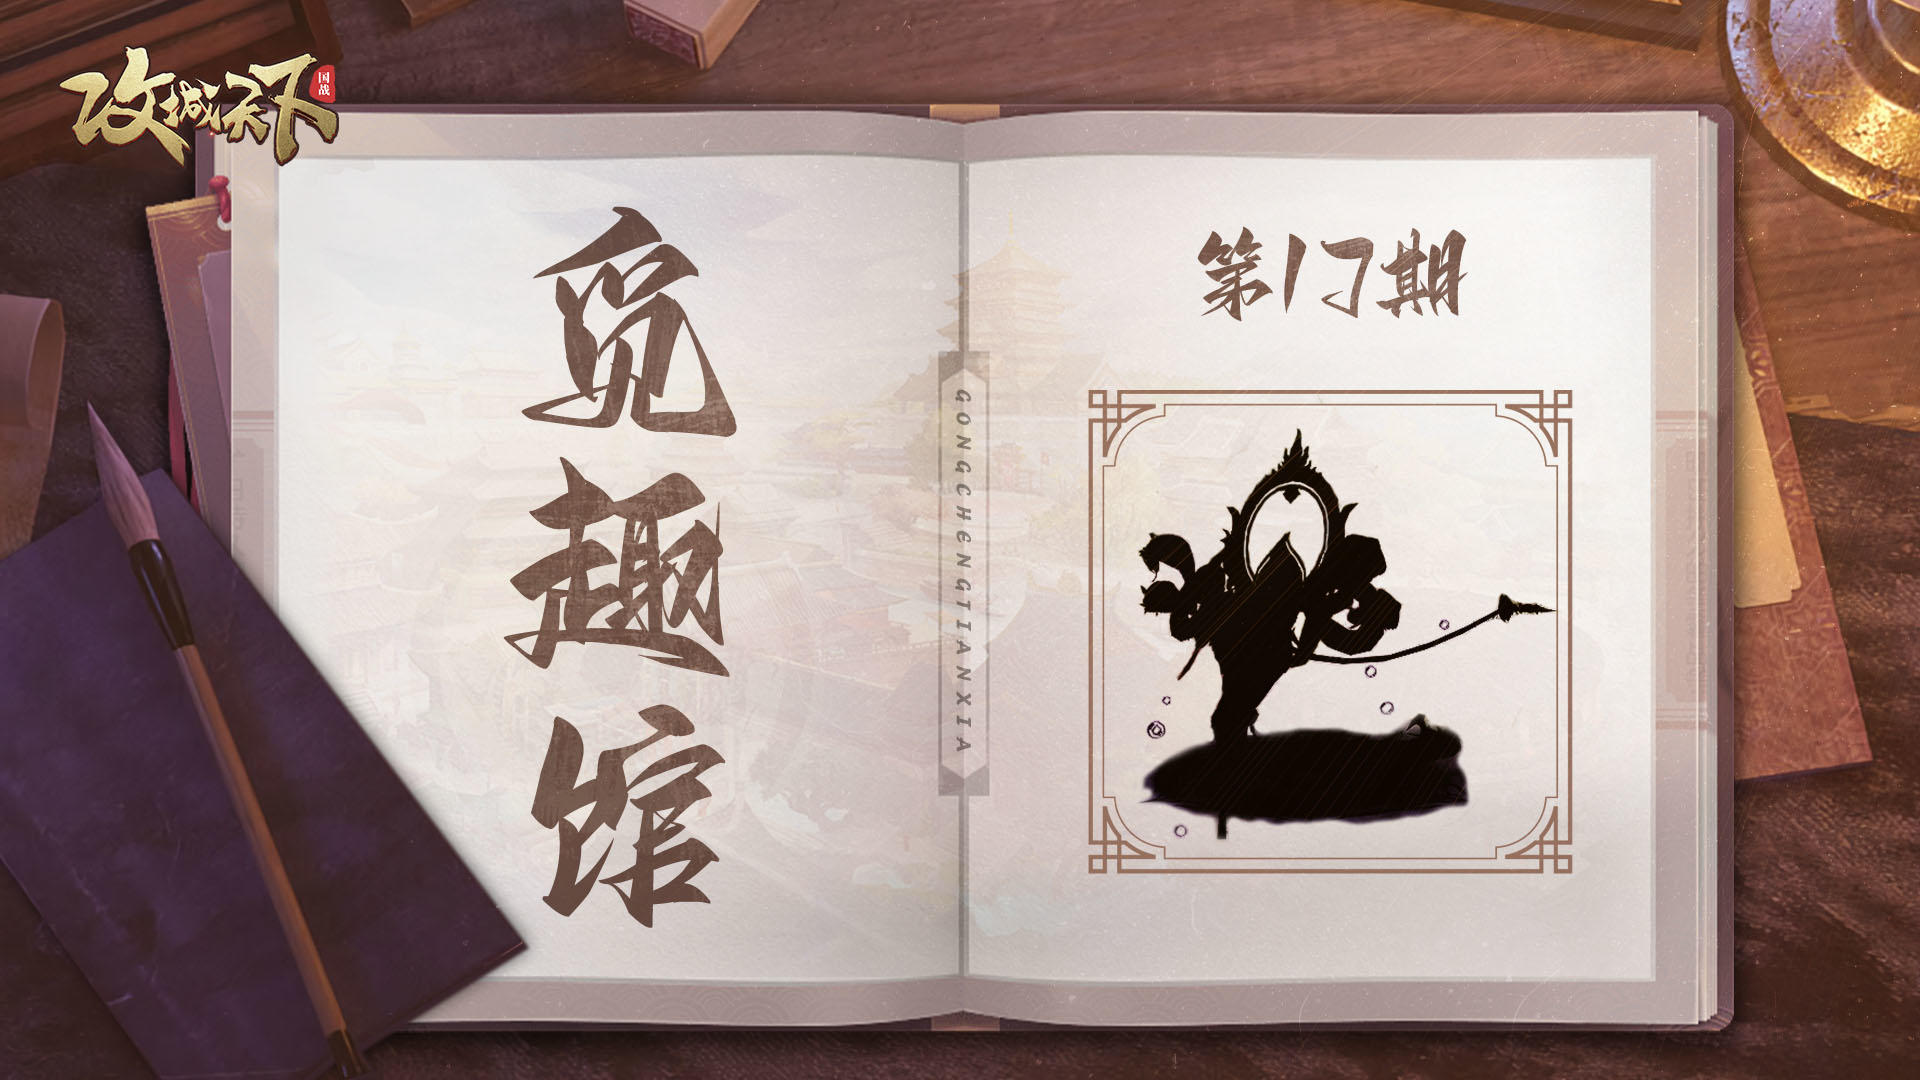 攻城天下
国战
觅趣馆
GONGCHENGTIANXIA
第17期